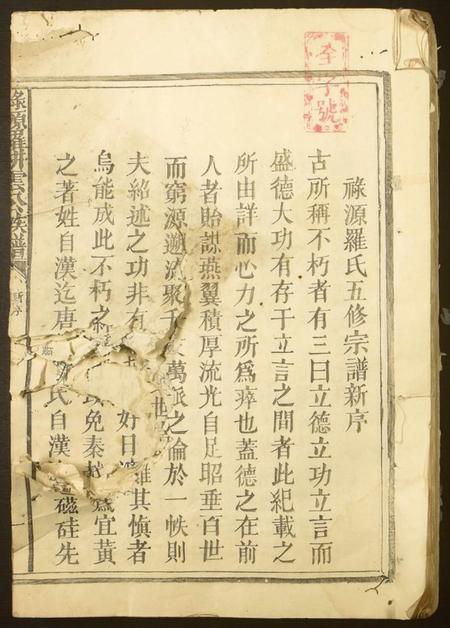 全字號
祿源羅氏五修宗譜新序
古所稱不朽者有三曰立德立功立言而
盛德大功有存于立言之間者此紀載之
所由詳而心力之所爲瘁也蓋德之在前
人者貽謀燕翼積厚流光自足昭垂百世
而窮源遡流聚千萬派之倫於一帙則
夫紹述之功非有世好日雖其愼者
烏能成此不朽之免秦爲宜黃
之著姓自漢迄唐氏自漢磁硅先
族譜